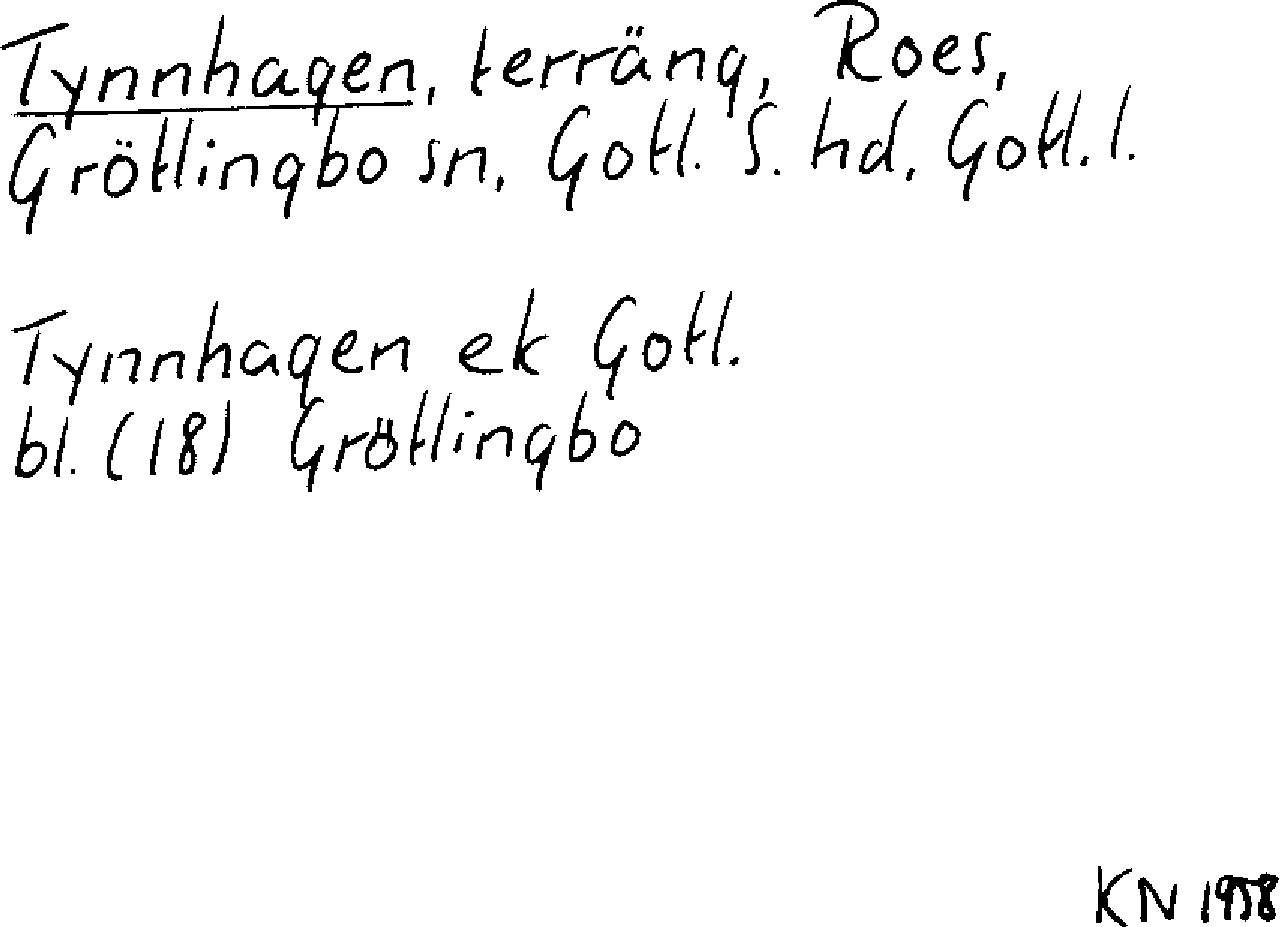 Tynnhagen, terräng, Roes,
Grötlingbo sn, Gotl. S. hd, Gotl. l.
Tynnhagen ek Gotl.
bl. (18) Grötlingbo
KN 1958